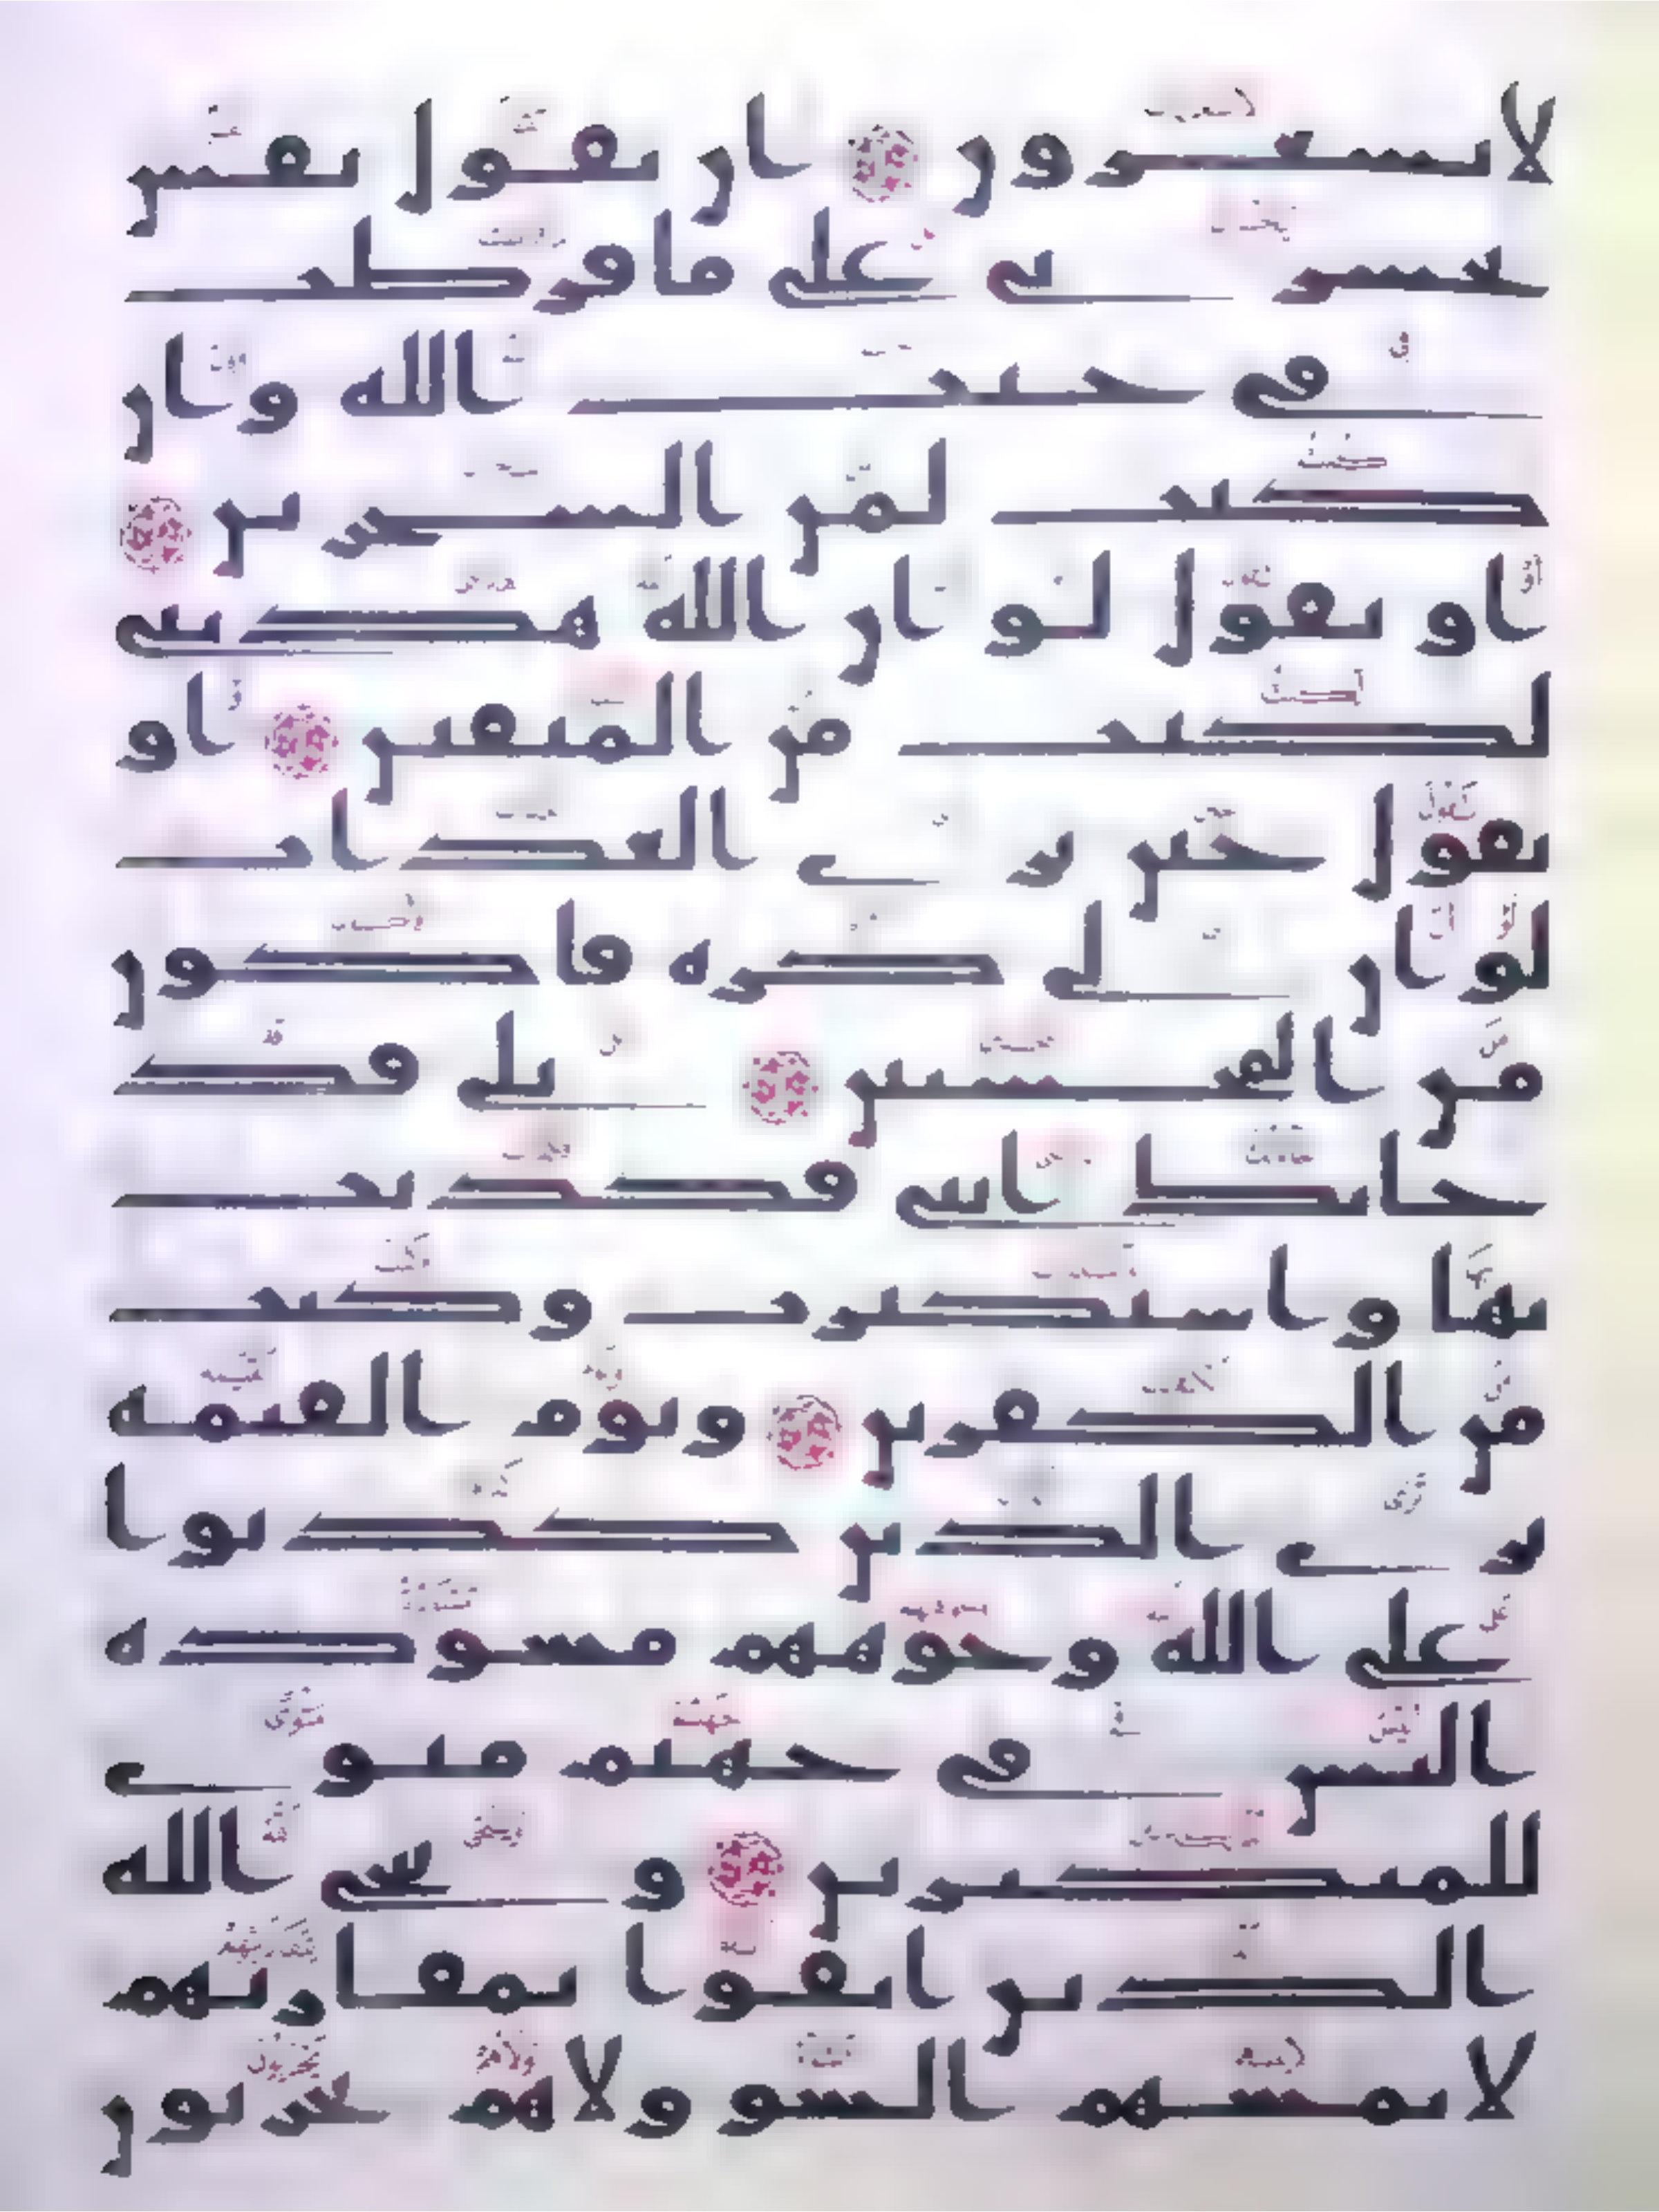 لا تشعرون ان تقول نفس
يحسرتى على ما فرطت
فى جنب الله وان
كنت لمن السخرين
او تقول لو ان الله هدىنى
لكنت من المتقين او
تقول حين ترى العذاب
لو ان لى كره فاكون
من المحسنين بلى قد
جاتك ءايتى فكذبت
بها واستكبرت وكنت
من الكفرين ويوم القيمه
ترى الذين كذبوا
على الله وجوههم مسوده
اليس فى جهنم مثوى
للمتكبرين وينجى الله
الذين اتقوا بمفازتهم
لا يمسهم السو ولا هم يحزنون